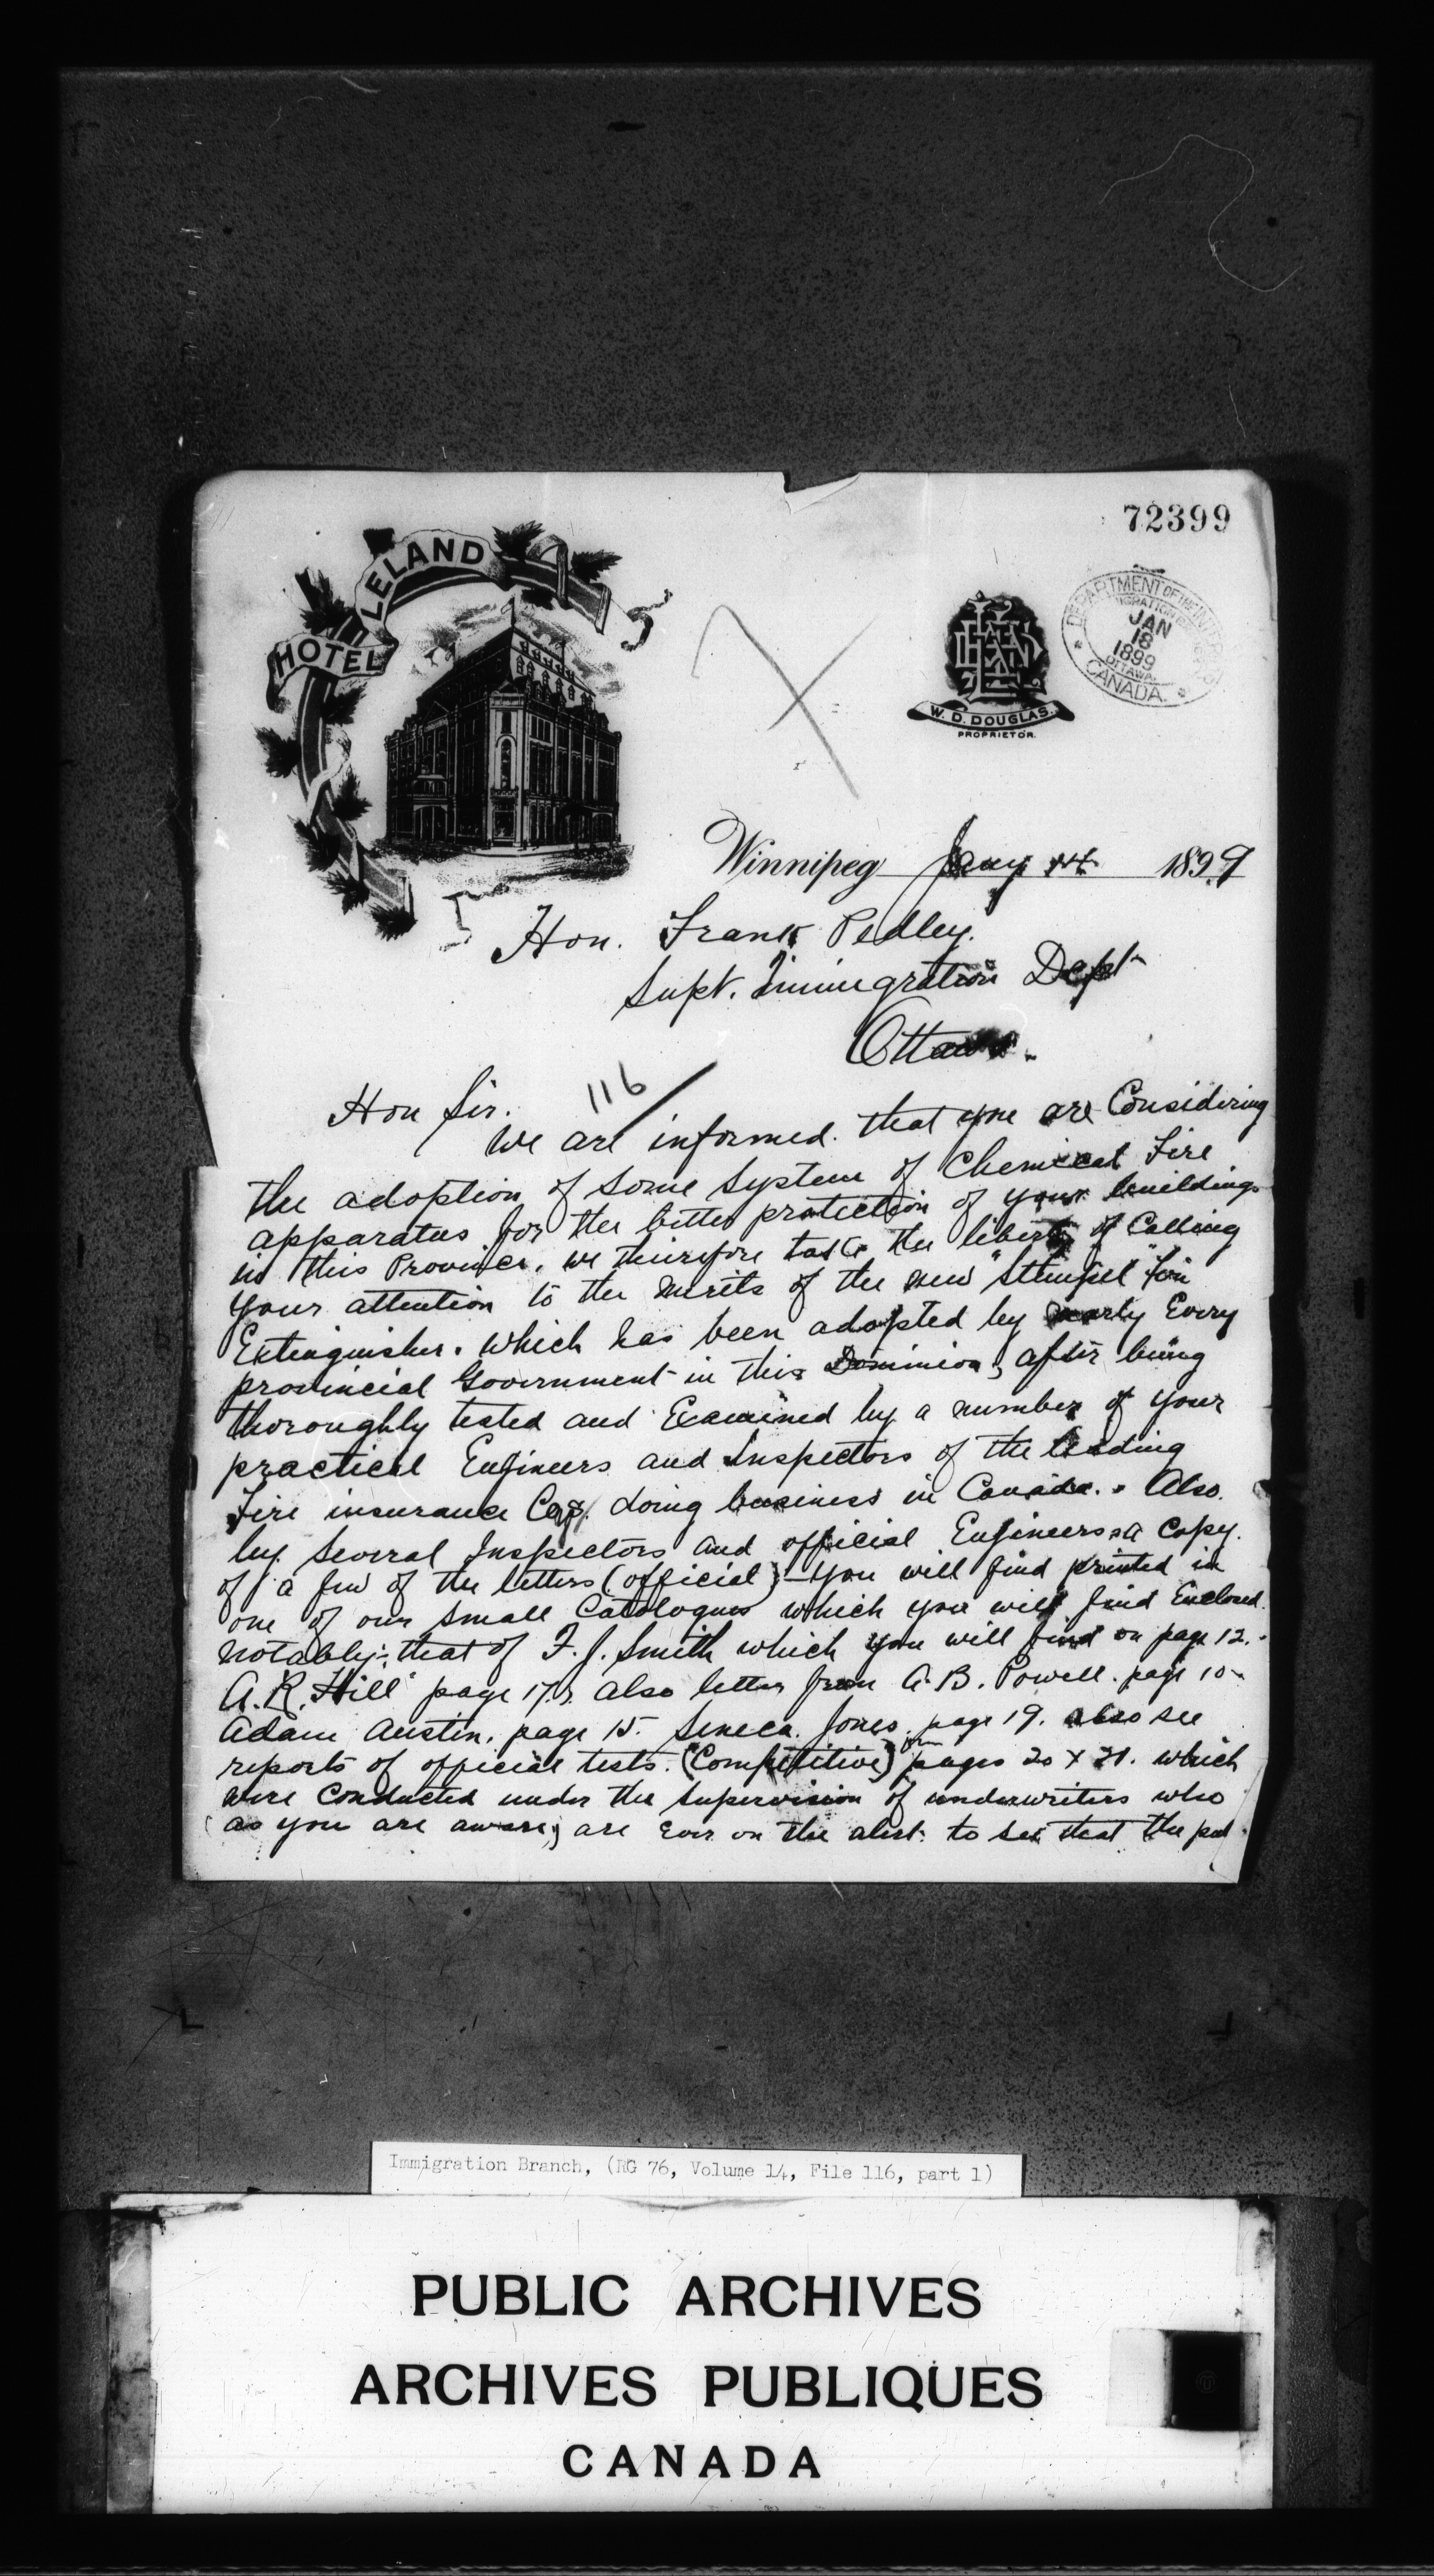 72399
LELAND
HOTEL
DEPARTMENT OF THE INTERIOR
IMMIGRATION
JAN
18
1899
OTTAWA.
CANADA.
W. D. DOUGLAS.
PROPRIETOR.
Winnipeg Jany 14 1899
Hon. Frank Pedley.
Supt. Immigration Dept
Ottawa.
116
Hon Sir.
We are informed. that you are Considering
the adoption of some system of Chemical Fire
apparatus for the better protection of your buildings
in this Province. we therefore take the liberty of Calling
your attention to the merits of the new "Stempel" Fire
Extinguisher. which has been adopted by nearly Every
provincial Government in this Dominion, after being
thoroughly tested and Examined by a number of your
practical Engineers and Inspectors of the leading
Fire insurance Cos. doing business in Canada. Also.
by several Inspectors and official Engineers a Copy.
of a few of the letters (official) - you will find printed in
one of our small Catalogues which you will find Enclosed.
notably; that of F. J. Smith which you will find on page 12.
A. R. Hill page 17. also letter from A. B. Powell. page 10
Adam Austin, page 15. Seneca. Jones. page 19. also see
reports of official tests. (Competitive) on pages 20 & 21. which
were Conducted under the supervision of underwriters who
(as you are aware) are Ever on the alert. to see that the pub
Immigration Branch, (RG 76, Volume 14, File 116, part 1)
PUBLIC ARCHIVES
ARCHIVES PUBLIQUES
CANADA